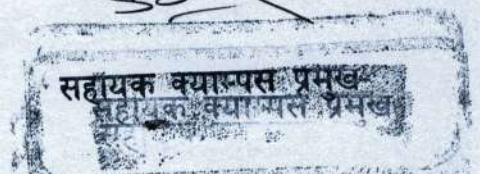 सहायक क्याम्पस प्रमुख
सहायक क्याम्पस प्रमुख